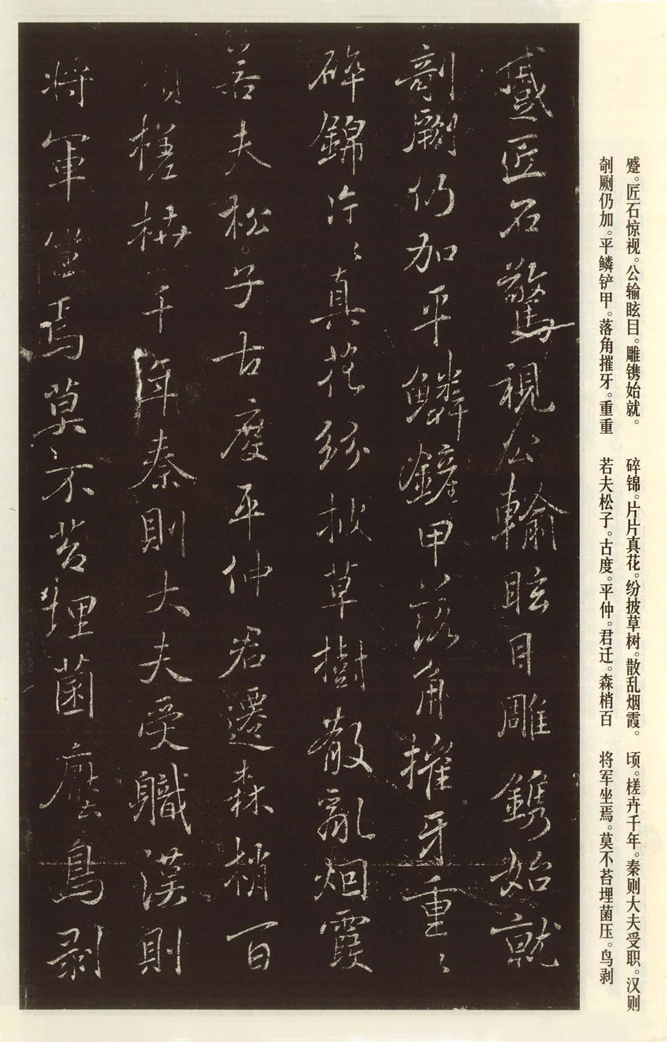 蹙。匠石惊视。公输眩目。雕镌始就。
剞劂仍加。平鳞铲甲。落角摧牙。重重
碎锦。片片真花。纷披草树。散乱烟霞。
若夫松子。古度。平仲。君迁。森梢百
顷。槎卉千年。秦则大夫受职。汉则
将军坐焉。莫不苔埋菌压。鸟剥
蹙匠石驚視公輸眩目雕鐫始就
剞劂仍加平鱗鏟甲落角摧牙重〻
碎錦片〻真花紛披草樹散亂烟霞
若夫松子古度平仲君遷森梢百
頃槎枿千年秦則大夫受職漢則
將軍坐焉莫不苔埋菌壓鳥剥